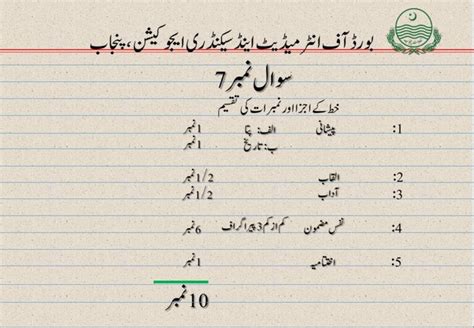 بورڈ آف انٹرمیڈیٹ اینڈ سیکنڈری ایجوکیشن، پنجاب
سوال نمبر 7
خط کے اجزا اور نمبرات کی تقسیم
1: پیشانی الف: پتا 1 نمبر
ب: تاریخ 1 نمبر
2: القاب 1/2 نمبر
3: آداب 1/2 نمبر
4: نفس مضمون کم از کم 3 پیراگراف 6 نمبر
5: اختتامیہ 1 نمبر
10 نمبر